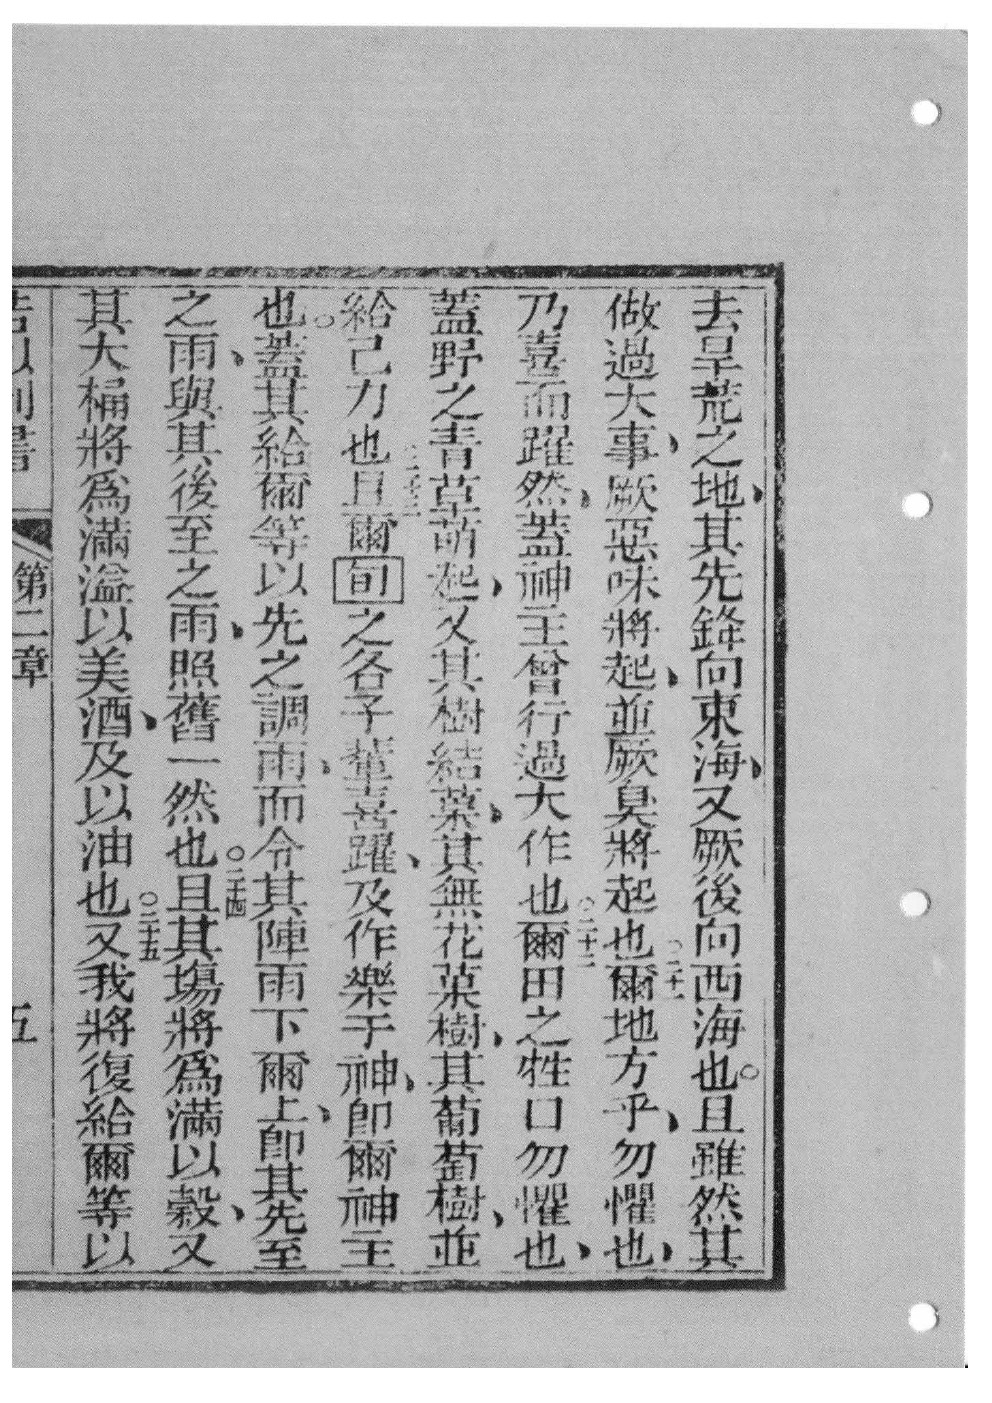 去旱荒之地、其先鋒向東海、又厥後向西海也。且雖然其
做過大事、厥惡味將起、並厥臭將起也○二十一爾地方乎、勿懼也、
乃喜而躍然、蓋神主曾行過大作也○二十二爾田之牲口勿懼也、
蓋野之青草萌起、又其樹結菓、其無花菓樹、其葡萄樹、並
給己力也○二十三且爾旬之各子輩喜躍、及作樂于神、即爾神主
也。蓋其給爾等以先之調雨、而令其陣雨下爾上、即其先至
之雨、與其後至之雨、照舊一然也○二十四且其塲將為滿以穀、又
其大桶將為滿溢以美酒、及以油也○二十五又我將復給爾等以
書 第二章 五